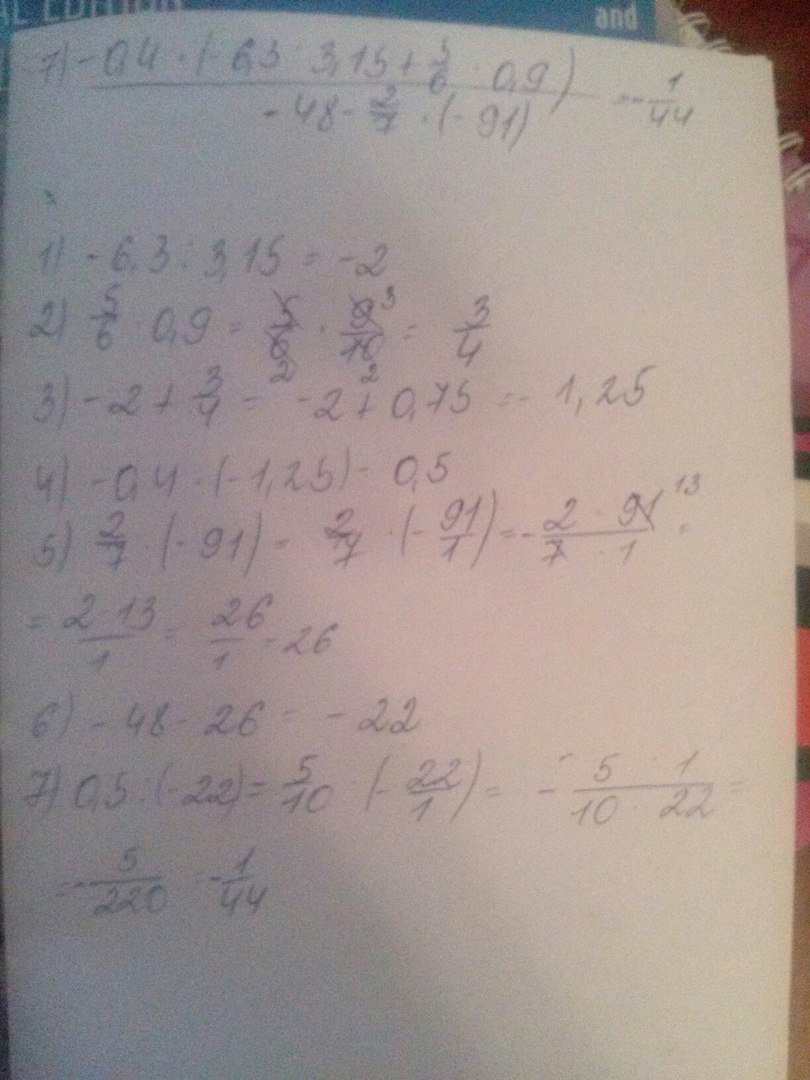 AL EDITION
and
7) -0,4 · (-6,3 : 3,15 + 5/6 · 0,9) / -48 - 2/7 · (-91) = -1/44
1) -6,3 : 3,15 = -2
2) 5/6 · 0,9 = 5/6 2 · 9 3/10 2 = 3/4
3) -2 + 3/4 = -2 + 0,75 = -1,25
4) -0,4 · (-1,25) = 0,5
5) 2/7 · (-91) = 2/7 · (-91/1) = -2 · 91 13/7 · 1 =
= 2·13/1 = 26/1 = 26
6) -48 - 26 = -22
7) 0,5 : (-22) = 5/10 : (-22/1) = -5 · 1/10 · 22 =
= -5/220 = -1/44